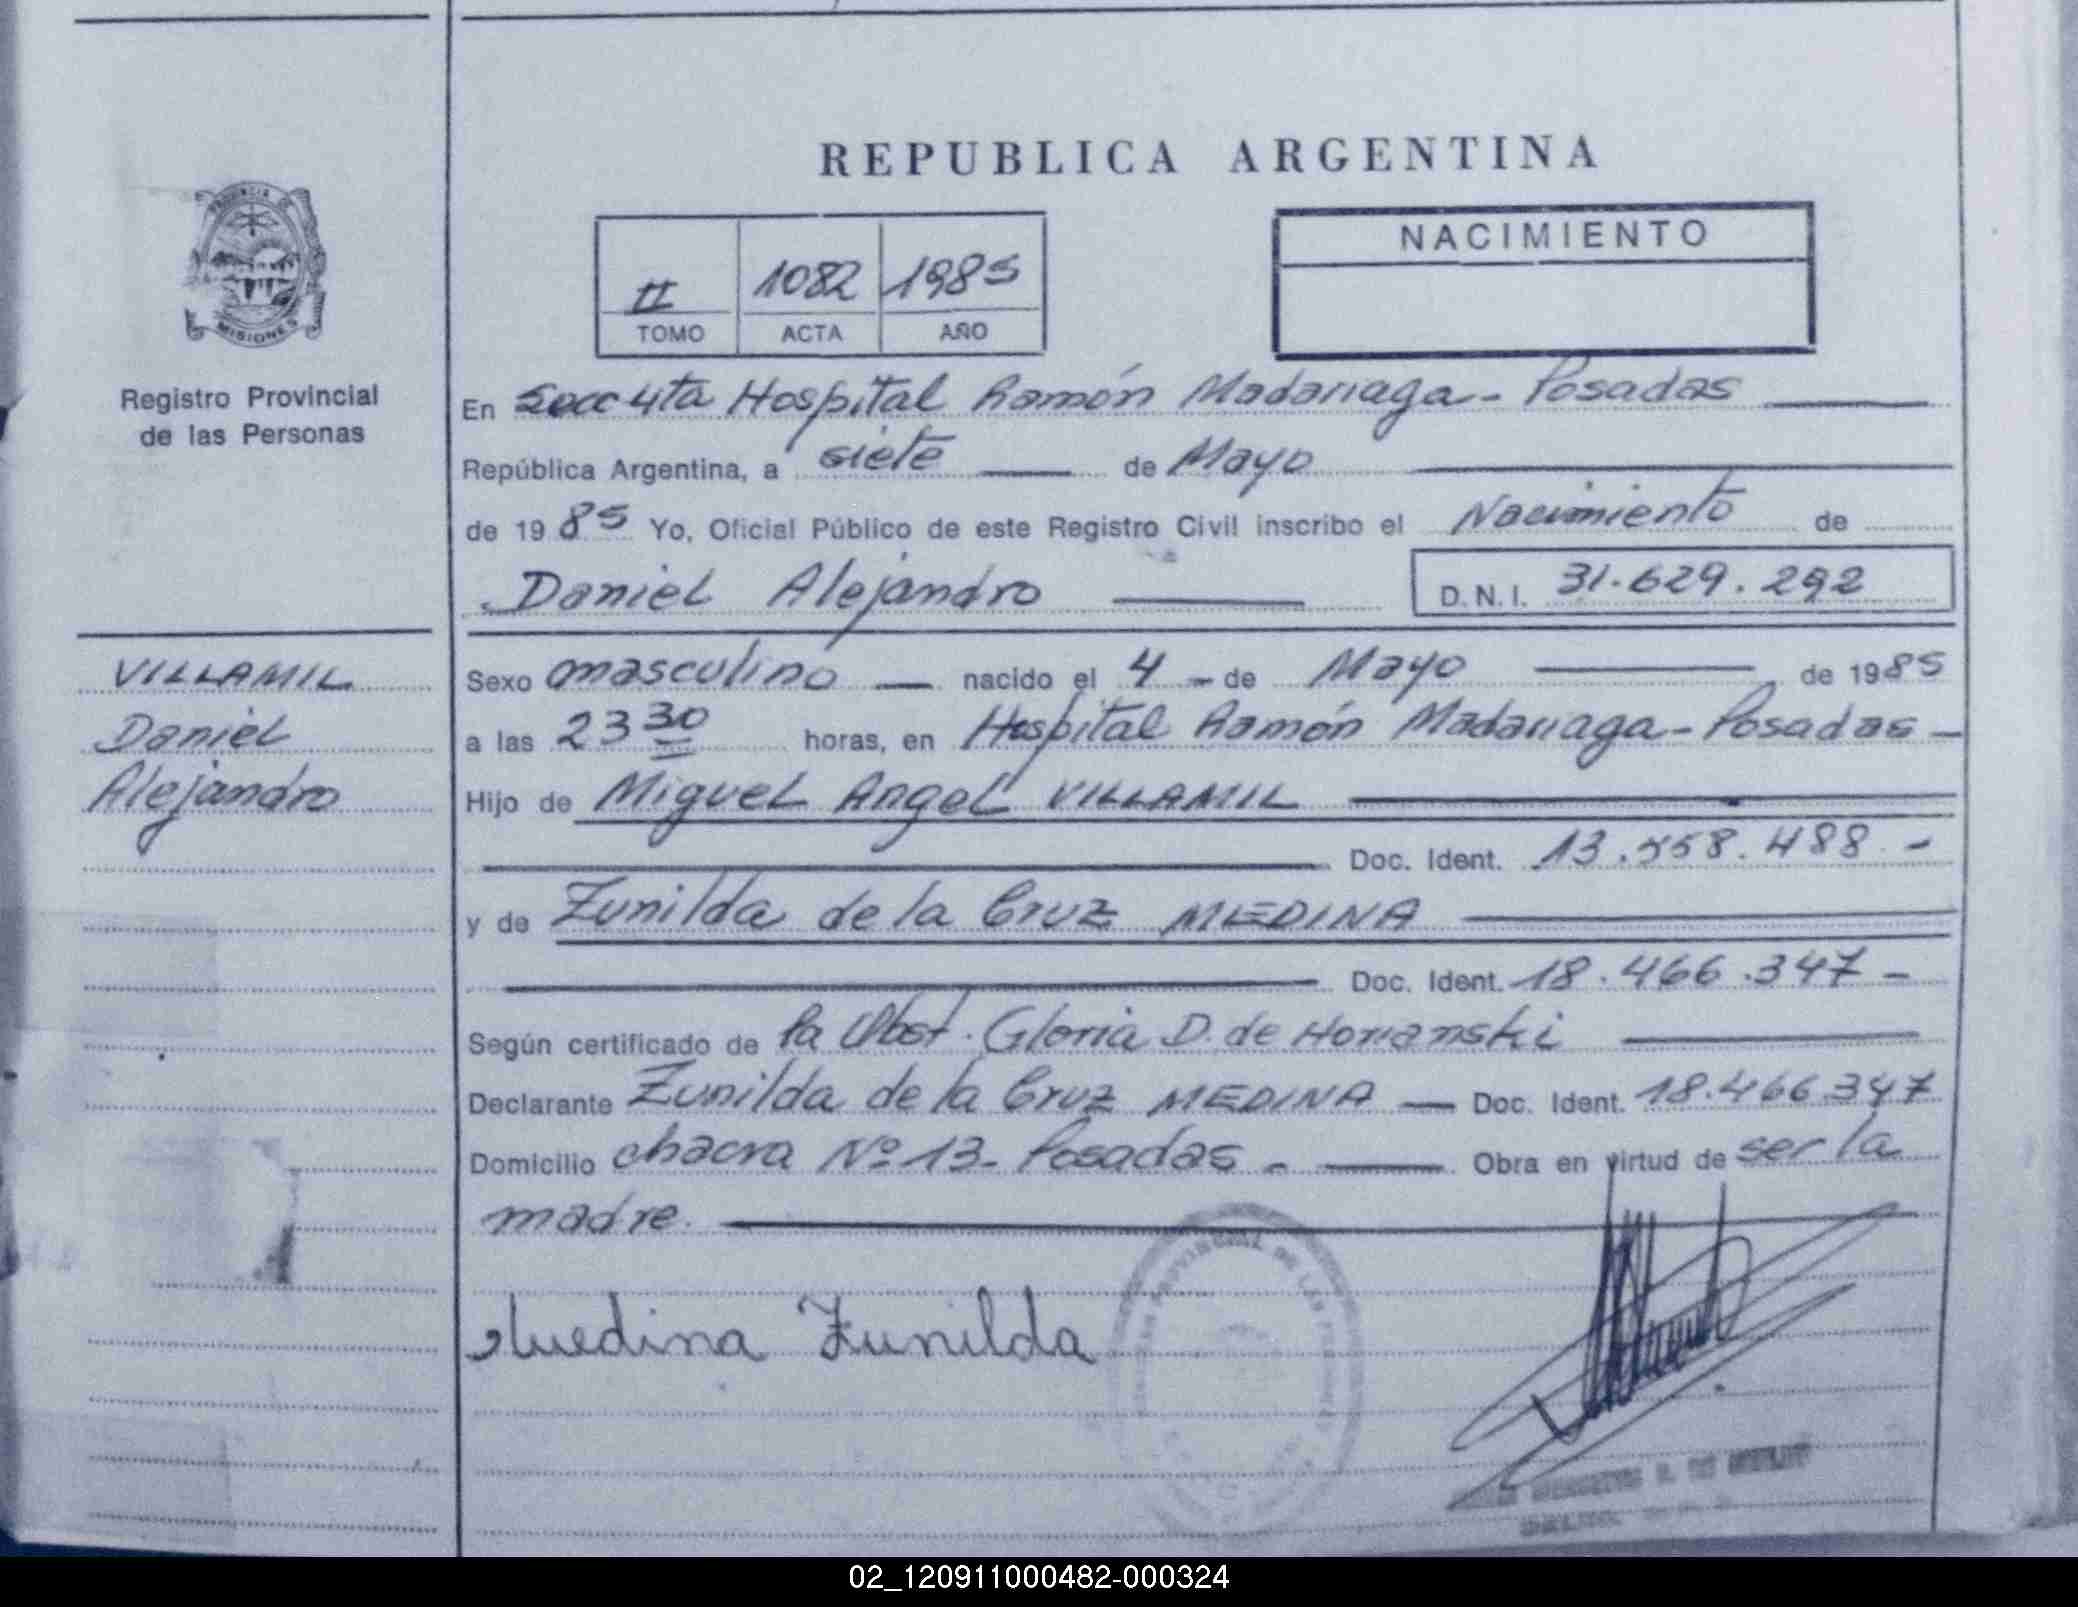 REPUBLICA ARGENTINA
PROVINCIA DE
MISIONES
Registro Provincial
de las Personas
II 1082 1985
TOMO ACTA AÑO
NACIMIENTO
En Secc 4ta Hospital Ramón Madariaga - Posadas
República Argentina, a siete de Mayo
de 1985 Yo, Oficial Público de este Registro Civil inscribo el Nacimiento de
Daniel Alejandro D.N.I. 31.629.292
VILLAMIL
Daniel
Alejandro
Sexo masculino nacido el 4 - de Mayo de 1985
a las 23 30 horas, en Hospital Ramón Madariaga - Posadas -
Hijo de Miguel Angel VILLAMIL
Doc. Ident. 13.558.488 -
y de Zunilda de la Cruz MEDINA
Doc. Ident. 18.466.347 -
Según certificado de la Obst. Gloria D. de
Declarante Zunilda de la Cruz MEDINA Doc. Ident. 18.466.347
Domicilio chacra Nº 13 - Posadas - Obra en virtud de ser la
madre.
Medina Zunilda
PROVINCIAL DE LAS
02_120911000482-000324